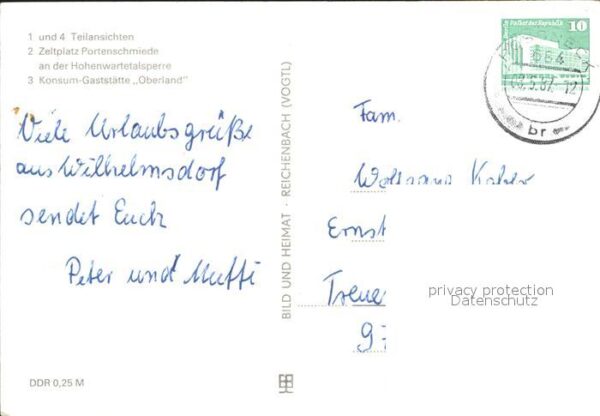 1 und 4 Teilansichten
2 Zeltplatz Portenschmiede
an der Hohenwartetalsperre
3 Konsum-Gaststätte „Oberland"
Viele Urlaubsgrüße
aus Wilhelmsdorf
sendet Euch
Peter und Muffi
DDR 0,25 M
BILD UND HEIMAT · REICHENBACH (VOGTL)
Palast der Republik 10
Fam.
Wolfgang
Ernst
Treue
privacy protection
Datenschutz